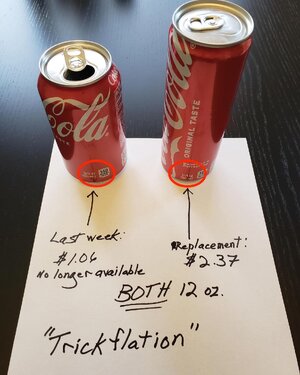 Cola
Coca-Cola
ORIGINAL TASTE
Last week:
$1.06
No longer available
Replacement:
$2.37
BOTH 12 oz.
"Trickflation"